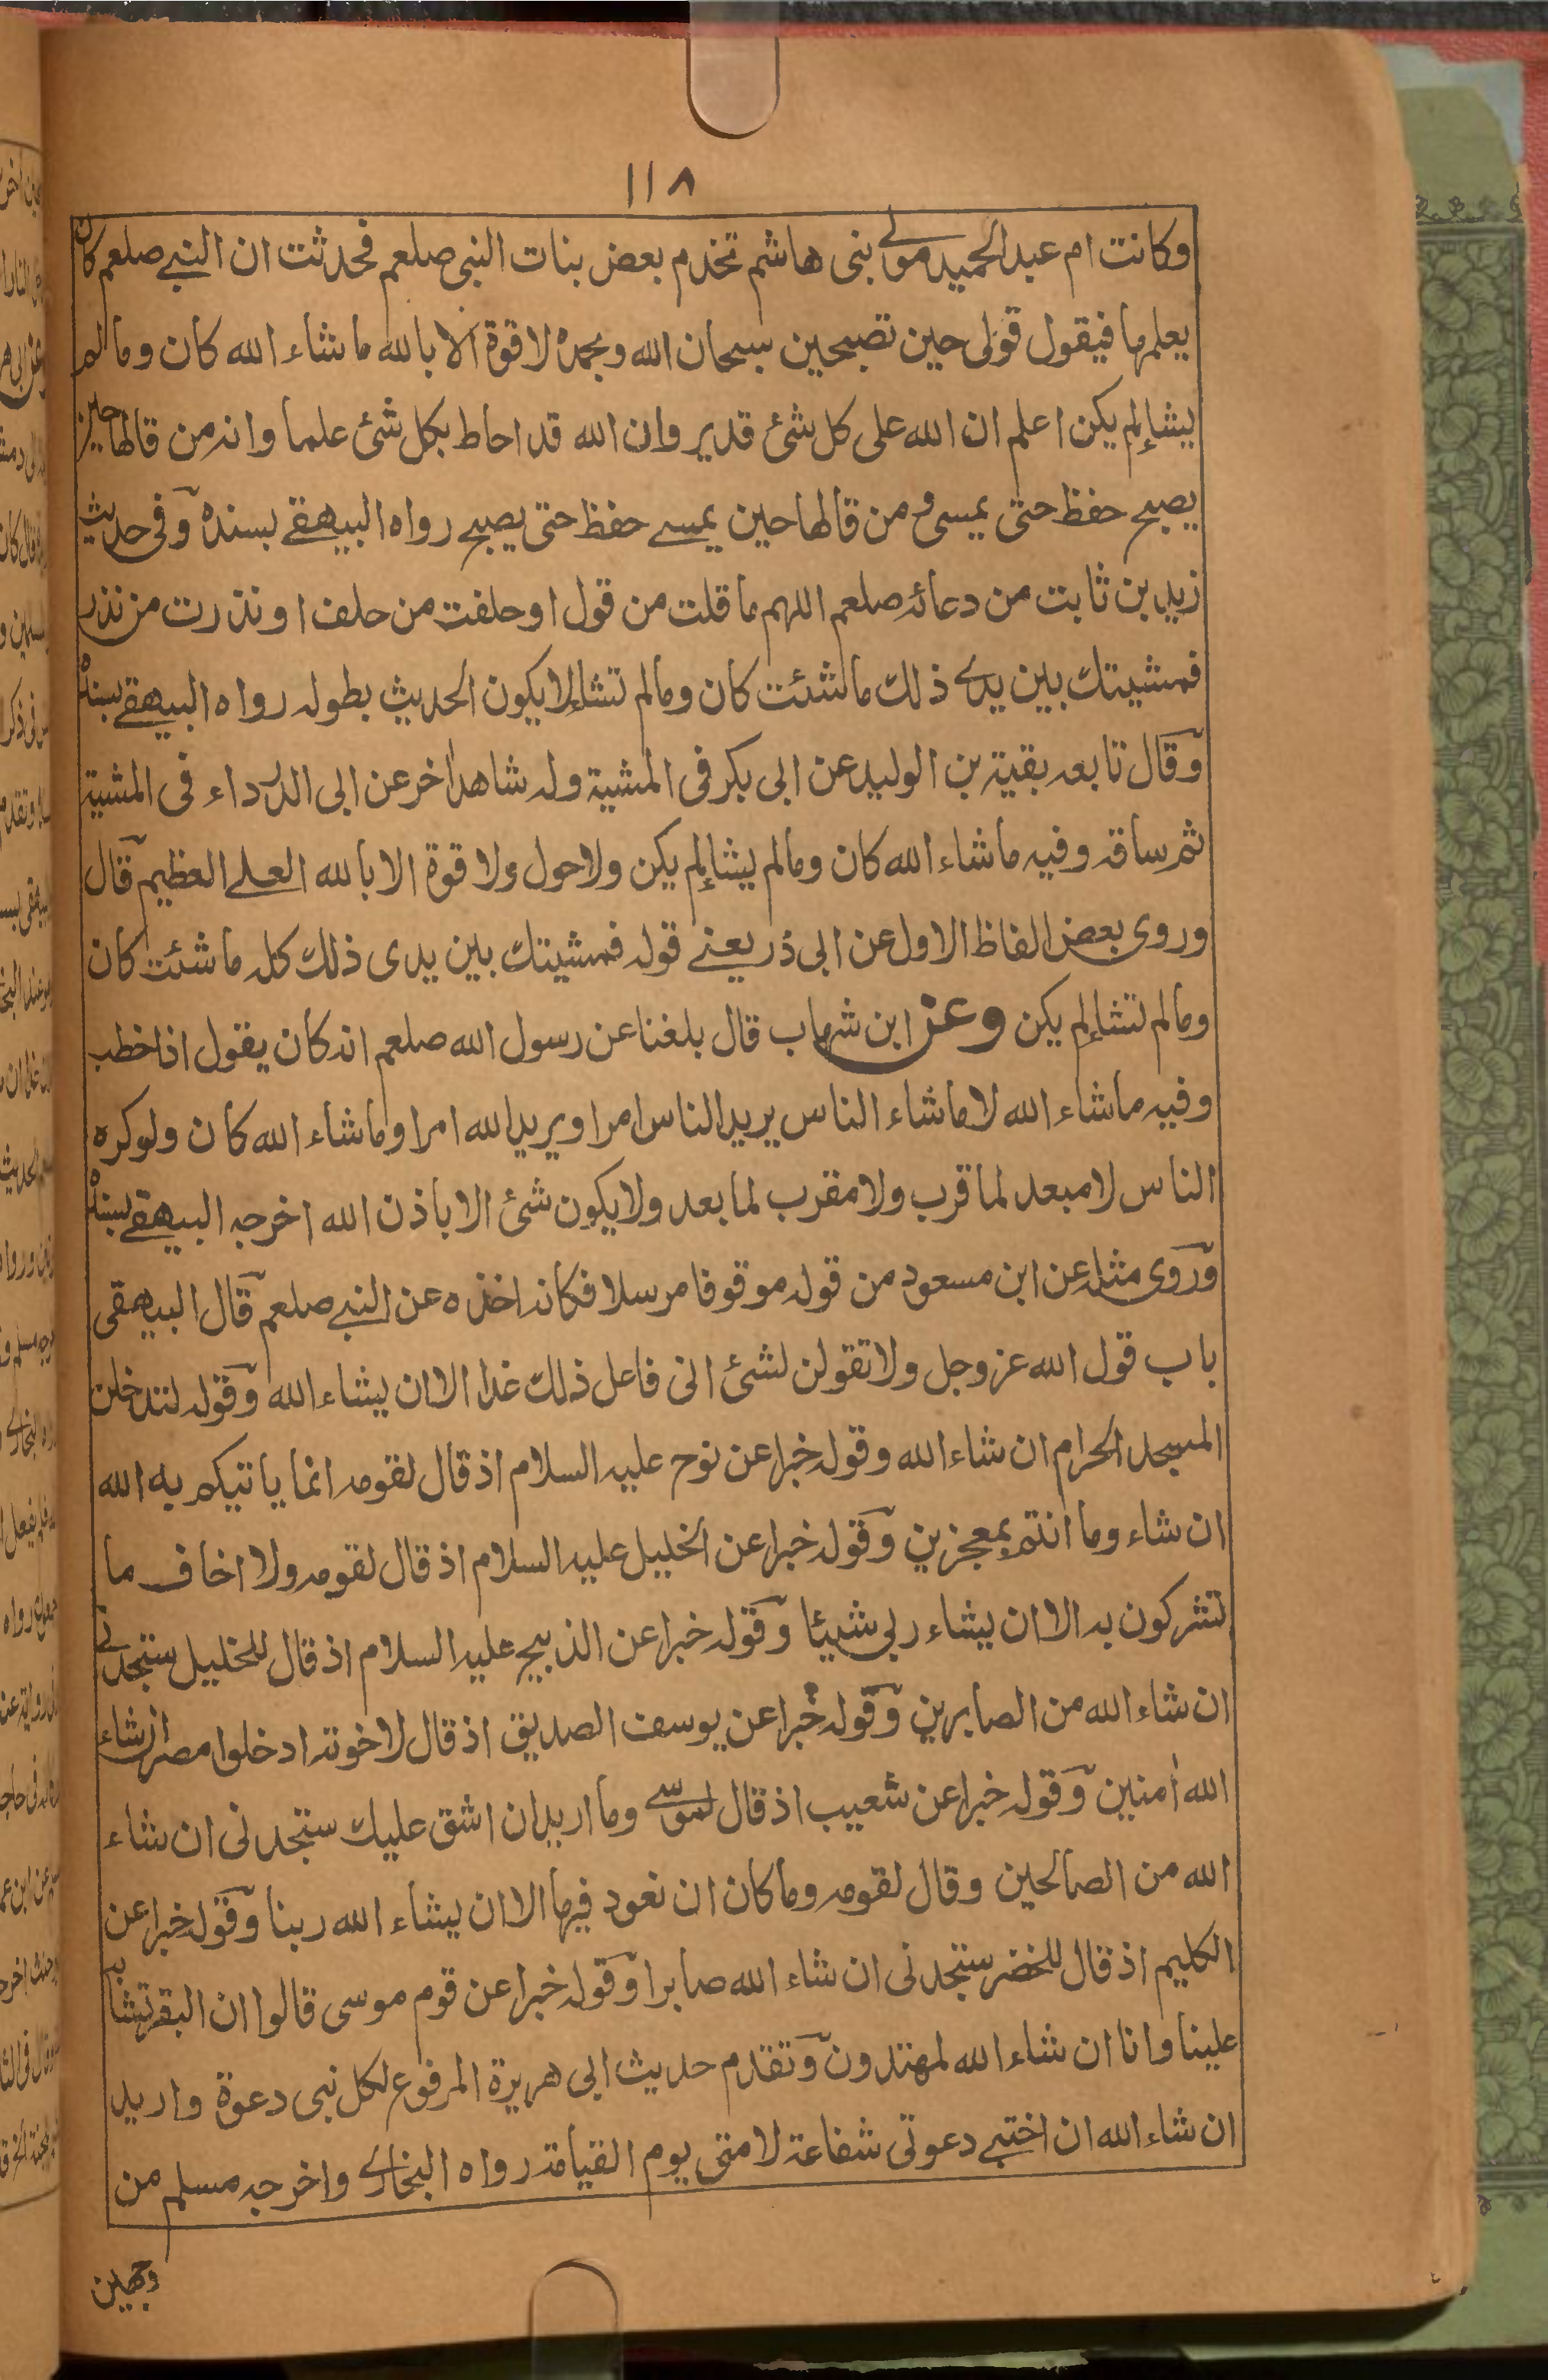 ١١٨
وكانت ام عبدالحميد مولى بنى هاشم تخدم بعض بنات النبى صلعم فحدثت ان النبى صلعم كان
يعلمها فيقول قولى حين تصبحين سبحان الله وبحمده لا قوة الا بالله ما شاء الله كان وما لم
يشأ لم يكن اعلم ان الله على كل شئ قدير وان الله قد احاط بكل شئ علما وانه من قالها حين
يصبح حفظ حتى يمسى ومن قالها حين يمسى حفظ حتى يصبح رواه البيهقى بسنده وفى حديث
زيد بن ثابت من دعائه صلعم اللهم ما قلت من قول او حلفت من حلف او نذرت من نذر
فمشيتك بين يدى ذلك ما شئت كان وما لم تشأ لا يكون الحديث بطوله رواه البيهقى بسنده
وقال تابعه بقية بن الوليد عن ابى بكر فى المشية وله شاهد اخر عن ابى الدرداء فى المشية
ثم ساقه وفيه ما شاء الله كان وما لم يشأ لم يكن ولا حول ولا قوة الا بالله العلى العظيم قال
وروى بعض الفاظ الاول عن ابى ذر يعنى قوله فمشيتك بين يدى ذلك كله ما شئت كان
وما لم تشأ لم يكن وعن ابن شهاب قال بلغنا عن رسول الله صلعم انه كان يقول اذا خطب
وفيه ما شاء الله لا ما شاء الناس يريد الناس امرا ويريد الله امرا وما شاء الله كان ولو كره
الناس لا مبعد لما قرب ولا مقرب لما بعد ولا يكون شئ الا باذن الله اخرجه البيهقى بسنده
وروى مثله عن ابن مسعود من قوله موقوفا مرسلا فكانه اخذه عن النبى صلعم قال البيهقى
باب قول الله عز وجل ولا تقولن لشئ انى فاعل ذلك غدا الا ان يشاء الله وقوله لتدخلن
المسجد الحرام ان شاء الله وقوله خبرا عن نوح عليه السلام اذ قال لقومه انما ياتيكم به الله
ان شاء وما انتم بمعجزين وقوله خبرا عن الخليل عليه السلام اذ قال لقومه ولا اخاف ما
تشركون به الا ان يشاء ربى شيئا وقوله خبرا عن الذبيح عليه السلام اذ قال للخليل ستجدنى
ان شاء الله من الصابرين وقوله خبرا عن يوسف الصديق اذ قال لاخوته ادخلوا مصر ان شاء
الله اٰمنين وقوله خبرا عن شعيب اذ قال لموسى وما اريد ان اشق عليك ستجدنى ان شاء
الله من الصالحين وقال لقومه وما كان ان نعود فيها الا ان يشاء الله ربنا وقوله خبرا عن
الكليم اذ قال للخضر ستجدنى ان شاء الله صابرا وقوله خبرا عن قوم موسى قالوا ان البقر تشابه
علينا وانا ان شاء الله لمهتدون وتقدم حديث ابى هريرة المرفوع لكل نبى دعوة واريد
ان شاء الله ان اختبى دعوتى شفاعة لامتى يوم القيامة رواه البخارى واخرجه مسلم من
وجهين